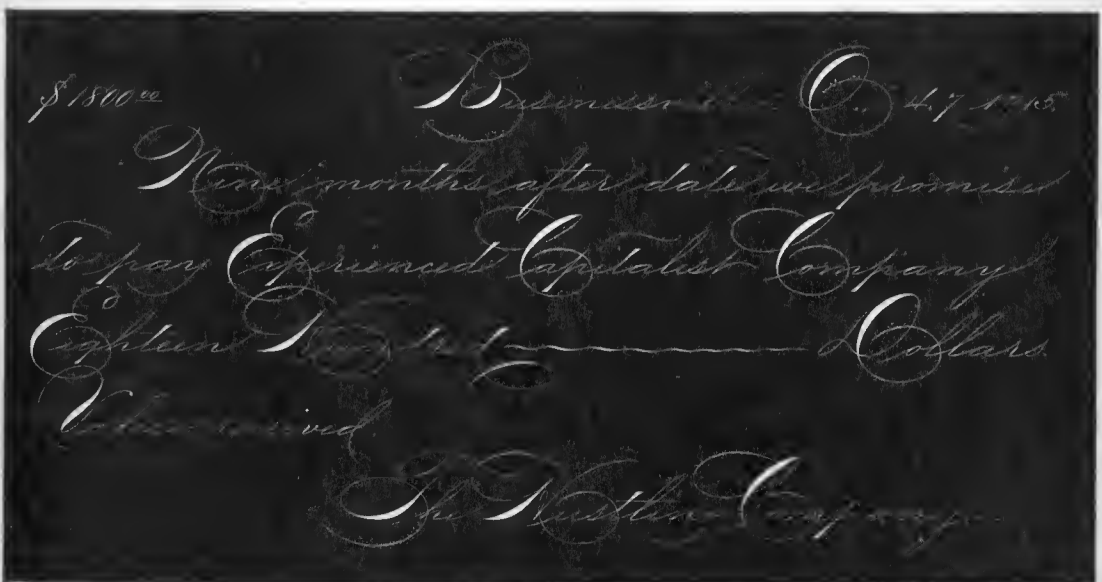 $1800.00 Business
Nine months after date we promise
to pay Experienced Capitalist Company
Eighteen Dollars
Value received
The Hustler Company